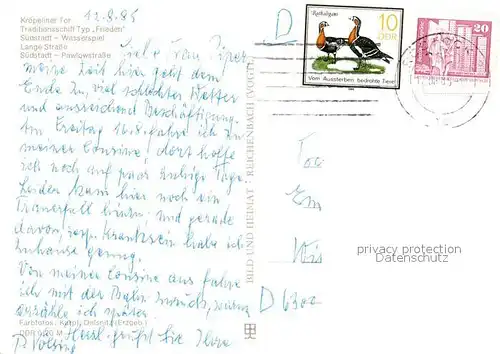 12.8.85
Kröpeliner Tor
Traditionsschiff Typ „Frieden"
Südstadt – Wasserspiel
Lange Straße
Südstadt – Pawlowstraße
Liebe Frau
meine Zeit hier geht dem
Ende zu, viel schlechtes Wetter
und ausreichend Beschäftigung.
Am Freitag 16.8. fahre ich zu
meiner Cousine, dort hoffe
ich noch auf paar ruhige Tage.
Leider kam hier noch ein
Trauerfall hinzu und gerade
davon, resp. Kranksein habe ich
zuhause genug.
Von meiner Cousine aus fahre
ich mit der Bahn zurück, warum
erzähle ich später.
Herzl. grüßt Sie Ihre
P.
BILD UND HEIMAT · REICHENBACH (VOGTL)
D
Rothalsgans
10
DDR
Vom Aussterben bedrohte Tiere
20
DDR
D 6300
privacy protection
Datenschutz